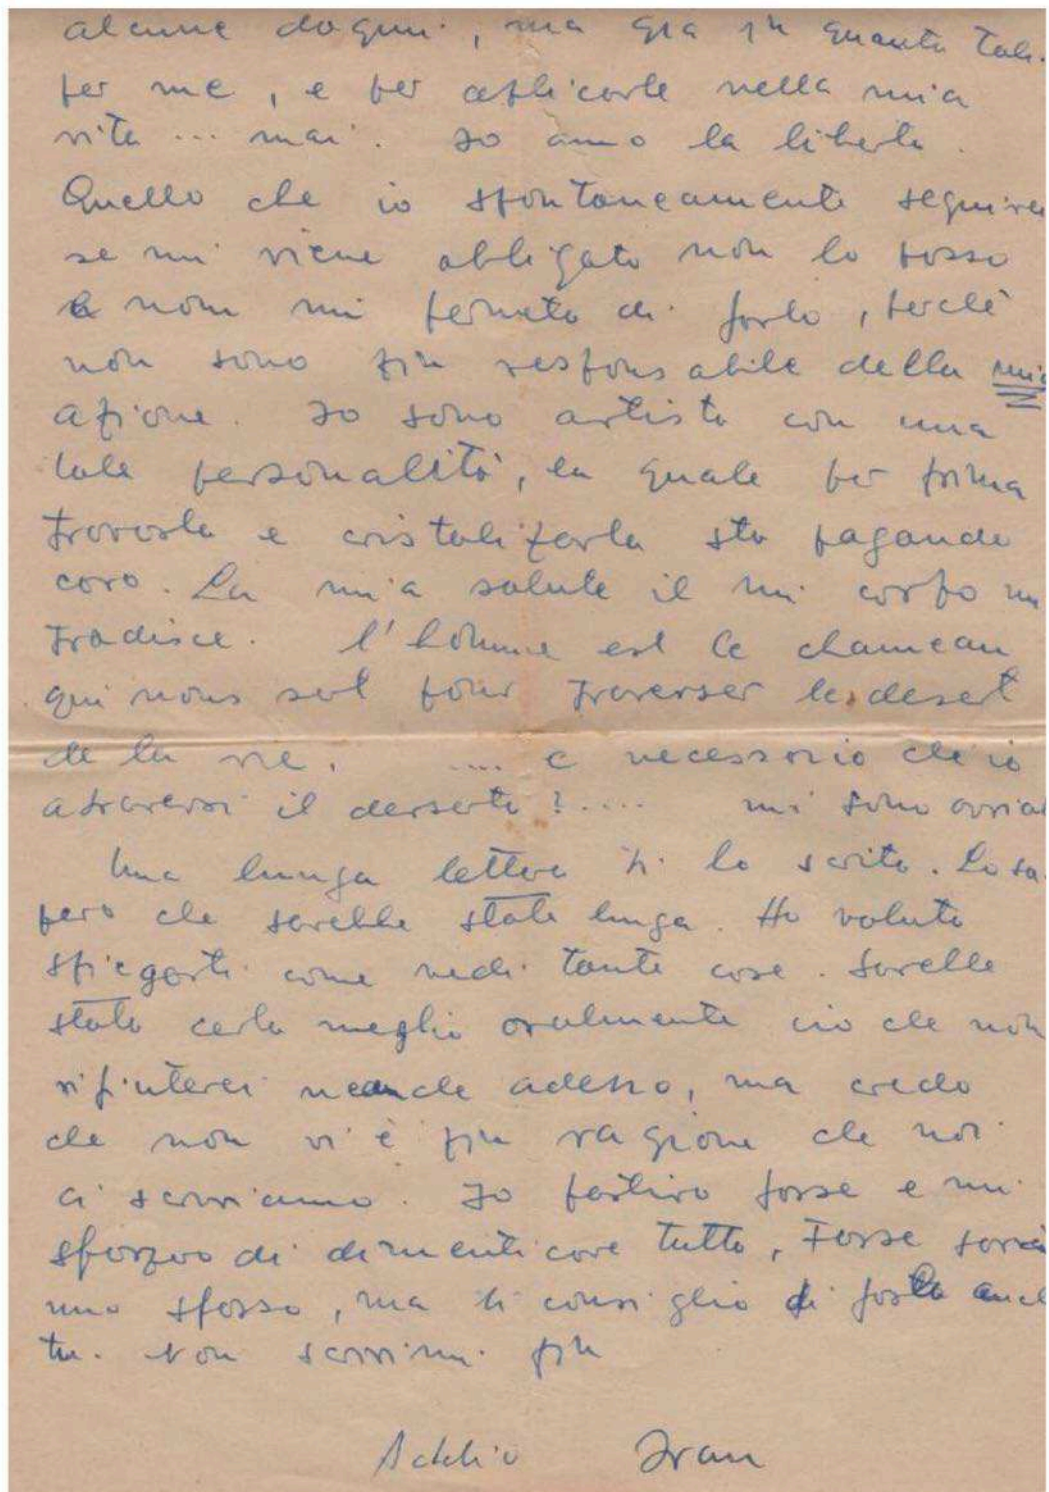 alcune dogmi, ma gia in quanto tali.
per me, e per applicarle nella mia
vita ... mai. Io amo la liberta.
Quello che io spontaneamente seguirei
se mi viene obbligato non lo posso
e non mi permeto di farlo, perchè
non sono piu responsabile della mia
azione. Io sono artista con una
tale personalità, la quale per prima
trovarla e cristalizarla sto pagando
caro. La mia salute il mi corpo mi
tradisce. l'homme est le chameau
qui nous sert pour traverser le desert
de la vie. .... e necessario che io
atraversi il derserto?.... mi sono avviat
Una lunga lettera ti ho scrito. Lo sa
pevo che sarebbe stata lunga. Ho voluto
spiegarti come vedi tante cose. Sarebbe
stato certo meglio oralmente cio che non
rifiuterei neanche adesso, ma credo
che non vi è piu ragione che noi
ci scriviamo. Io partiro forse e mi
sforzero di dimenticare tutto, Forse sarà
uno sforso, ma ti consiglio di farlo anch
tu. Non scrivimi piu
Addio Ivan